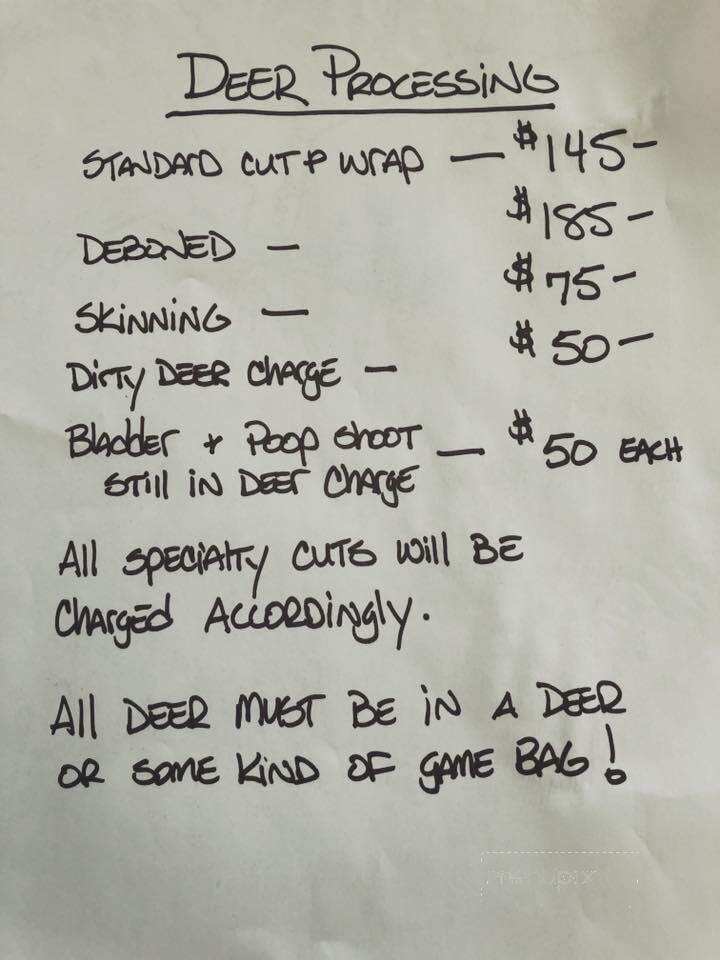 DEER PROCESSING
STANDARD CUT & WRAP — $145-
DEBONED — $185-
SKINNING — $75-
DIRTY DEER CHARGE — $50-
Bladder + Poop SHOOT — $50 EACH
STILL IN DEER CHARGE
All SPECIALTY CUTS Will BE
CHARGED ACCORDINGLY.
All DEER MUST BE IN A DEER
OR SOME KIND OF GAME BAG!